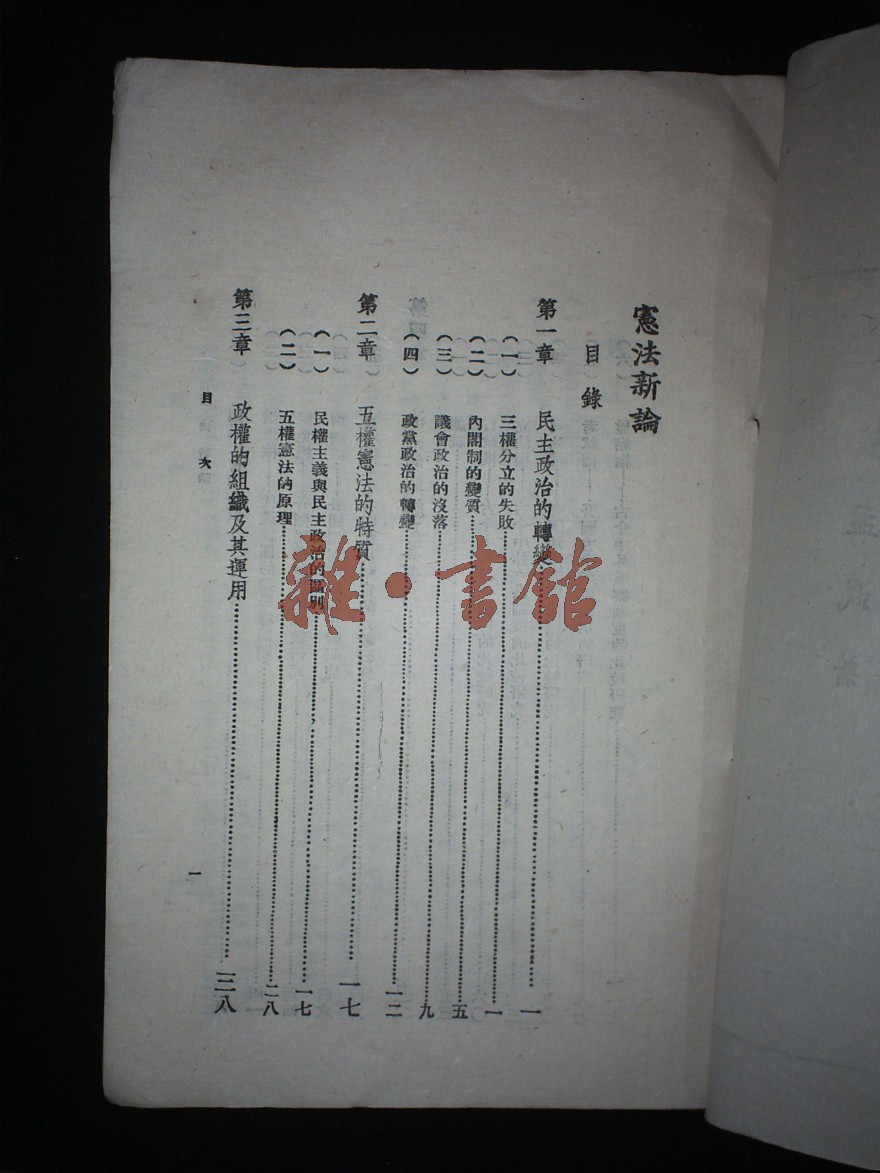 憲法新論
目錄
第一章 民主政治的轉變……一
（一） 三權分立的失敗……一
（二） 內閣制的變質……五
（三） 議會政治的沒落……九
（四） 政黨政治的轉變……一二
第二章 五權憲法的特質……一七
（一） 民權主義與民主政治的區別……一七
（二） 五權憲法的原理……二八
第三章 政權的組織及其運用……三八
目次
一
雜·書館